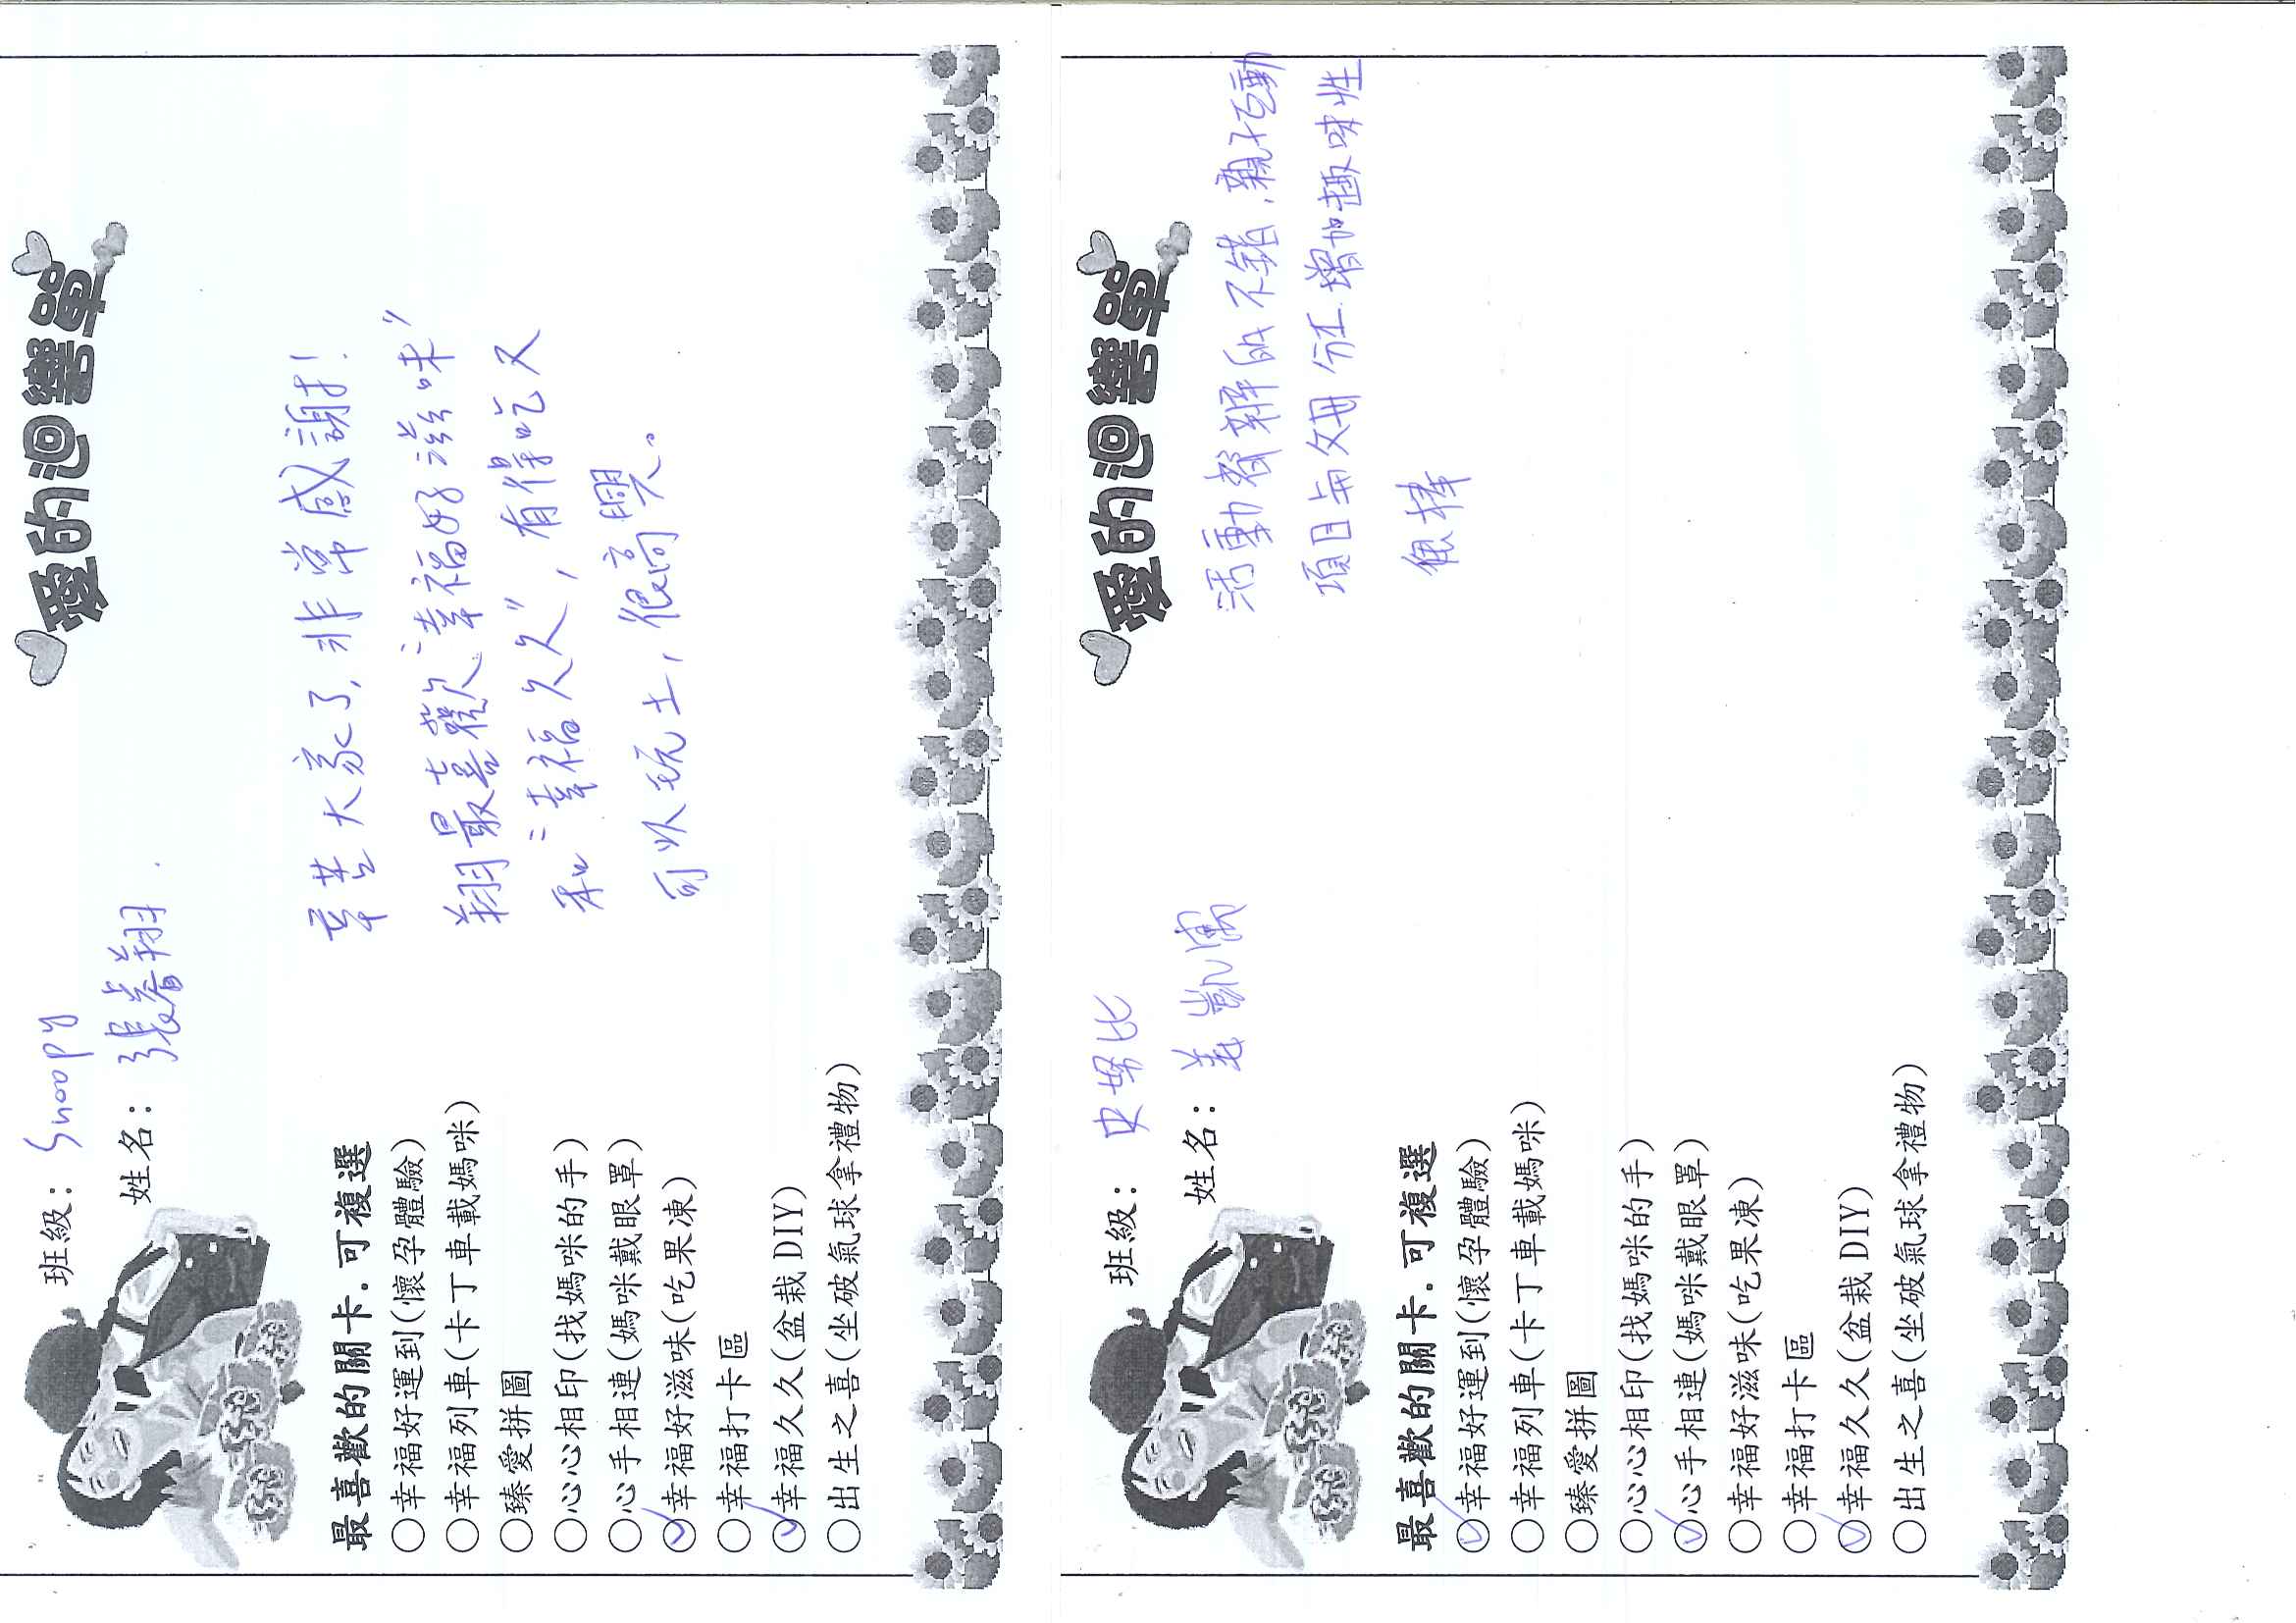 愛的迴響單
班級：Snoopy
姓名：張春翔
辛苦大家了，非常感謝！
翔最喜歡"幸福好滋味"
和"幸福久久"，有得吃又
可以玩土，很高興。
最喜歡的關卡．可複選
○幸福好運到(懷孕體驗)
○幸福列車(卡丁車載媽咪)
○臻愛拼圖
○心心相印(找媽咪的手)
○心手相連(媽咪戴眼罩)
○幸福好滋味(吃果凍)
○幸福打卡區
○幸福久久(盆栽DIY)
○出生之喜(坐破氣球拿禮物)
愛的迴響單
班級：史努比
姓名：姜凱
活動舉辦的不錯，親子互動
項目與父母分工增加趣味性
很棒
最喜歡的關卡．可複選
○幸福好運到(懷孕體驗)
○幸福列車(卡丁車載媽咪)
○臻愛拼圖
○心心相印(找媽咪的手)
○心手相連(媽咪戴眼罩)
○幸福好滋味(吃果凍)
○幸福打卡區
○幸福久久(盆栽DIY)
○出生之喜(坐破氣球拿禮物)